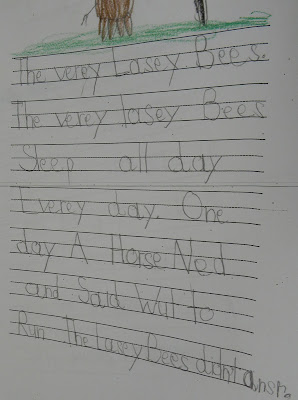 The verey Lasey Bees.
The verey lasey Bees
Sleep all day
Everey day. One
day A Horse Ned
and Said Wut to
Run The Lasey Bees didnt ansr.